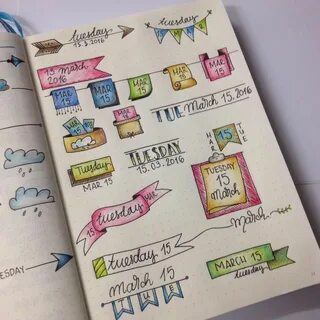 tuesday
15.3.2016
TUE
MAR
15
15 march
2016
MAR
15
MAR
15
MAR
15
MAR
15
MAR
15
TUE March 15. 2016
MAR
15
TUESDAY
15.03.2016
MAR
15
TUE
Tuesday
MAR 15
TUESDAY
15
march
15 tuesday MAR
march
tuesday 15
march 15
TUE
MARCH 15
tuesday
ESDAY